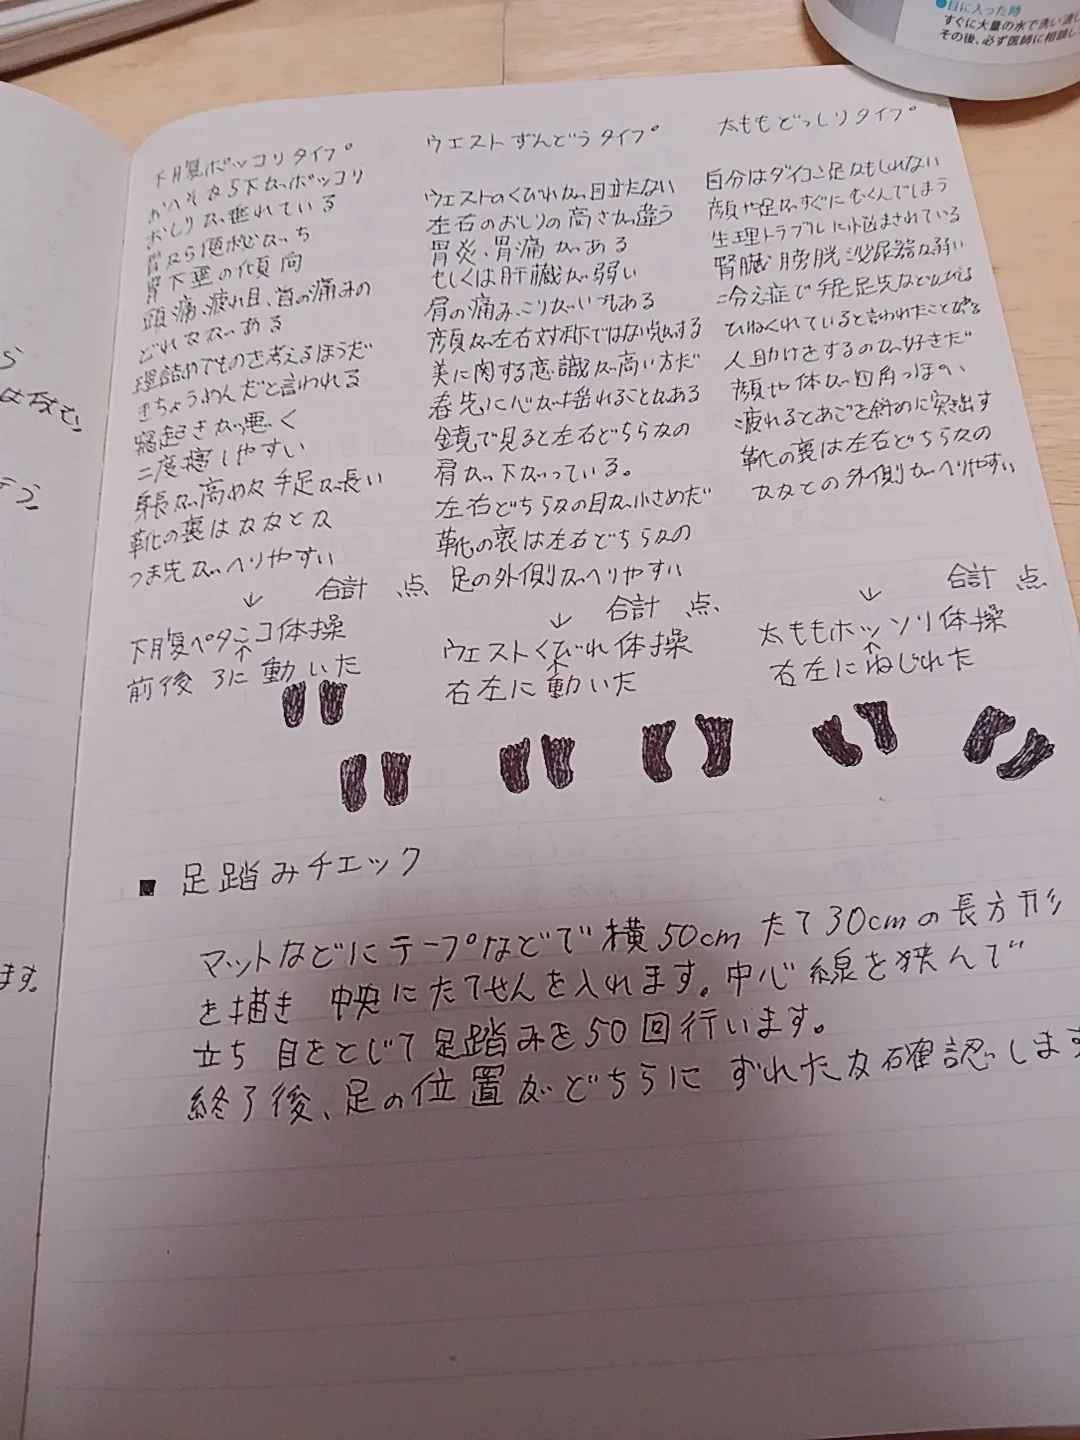 ●目に入った時
すぐに大量の水で洗い流し
その後、必ず医師に相談し
下腹ボッコリタイプ
おへそから下がボッコリ
おしりが垂れている
胃下垂の傾向
頭痛、疲れ目、首の痛みの
どれかがある
理詰めでものを考えるほうだ
きちょうめんだと言われる
寝起きが悪く
二度寝しやすい
身長が高めか手足が長い
靴の裏はかかとか
つま先がへりやすい
合計 点
↓
下腹ペタンコ体操
↑
前後ろに動いた
ウエストずんどうタイプ
ウエストのくびれが目立たない
左右のおしりの高さが違う
胃炎、胃痛がある
もしくは肝臓が弱い
肩の痛み、こりがいつもある
顔が左右対称ではない気がする
美に関する意識が高い方だ
春先に心が揺れることがある
鏡で見ると左右どちらかの
肩が下がっている。
左右どちらかの目が小さめだ
靴の裏は左右どちらかの
足の外側がへりやすい
合計 点
↓
ウエストくびれ体操
↑
右左に動いた
太ももどっしりタイプ
自分はダイコン足かもしれない
顔や足がすぐにむくんでしまう
生理トラブルに悩まされている
腎臓 膀胱 泌尿器が弱い
冷え症で手足足先などが冷える
ひねくれていると言われたことがある
人助けをするのが好きだ
顔や体が四角っぽい
疲れるとあごを斜めに突き出す
靴の裏は左右どちらかの
かかとの外側がへりやすい
合計 点
↓
太ももホッソリ体操
↑
右左にねじれた
■ 足踏みチェック
マットなどにテープなどで横50cmたて30cmの長方形
を描き 中央にたてせんを入れます。中心線を狭んで
立ち 目をとじて足踏みを50回行います。
終了後、足の位置がどちらにずれたか確認します
ます。